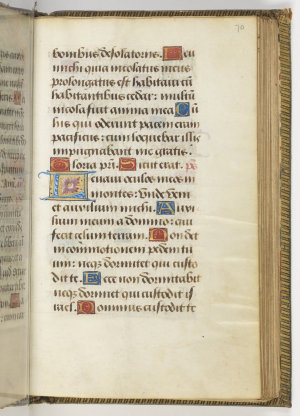 70
bonibus desolatorijs. Heu
michi quia incolatus meus
prolongatus est habitavi cū
habitantibus cedar: multū
incola fuit anima mea. Cū
his qui oderunt pacem eram
pacificus: cum loquebar illis
impugnabant me gratis.
Gloria pri. Sicut erat. ps
Levavi oculos meos in
montes: unde veni
et auxilium michi. Auxi
lium meum a domino: qui
fecit celum et terram. Non det
in cōmotionem pedem tu
um: neqz dormitet qui custo
dit te. Ecce non dormitabit
neqz dormiet qui custodit is
rael. Dominus custodit te